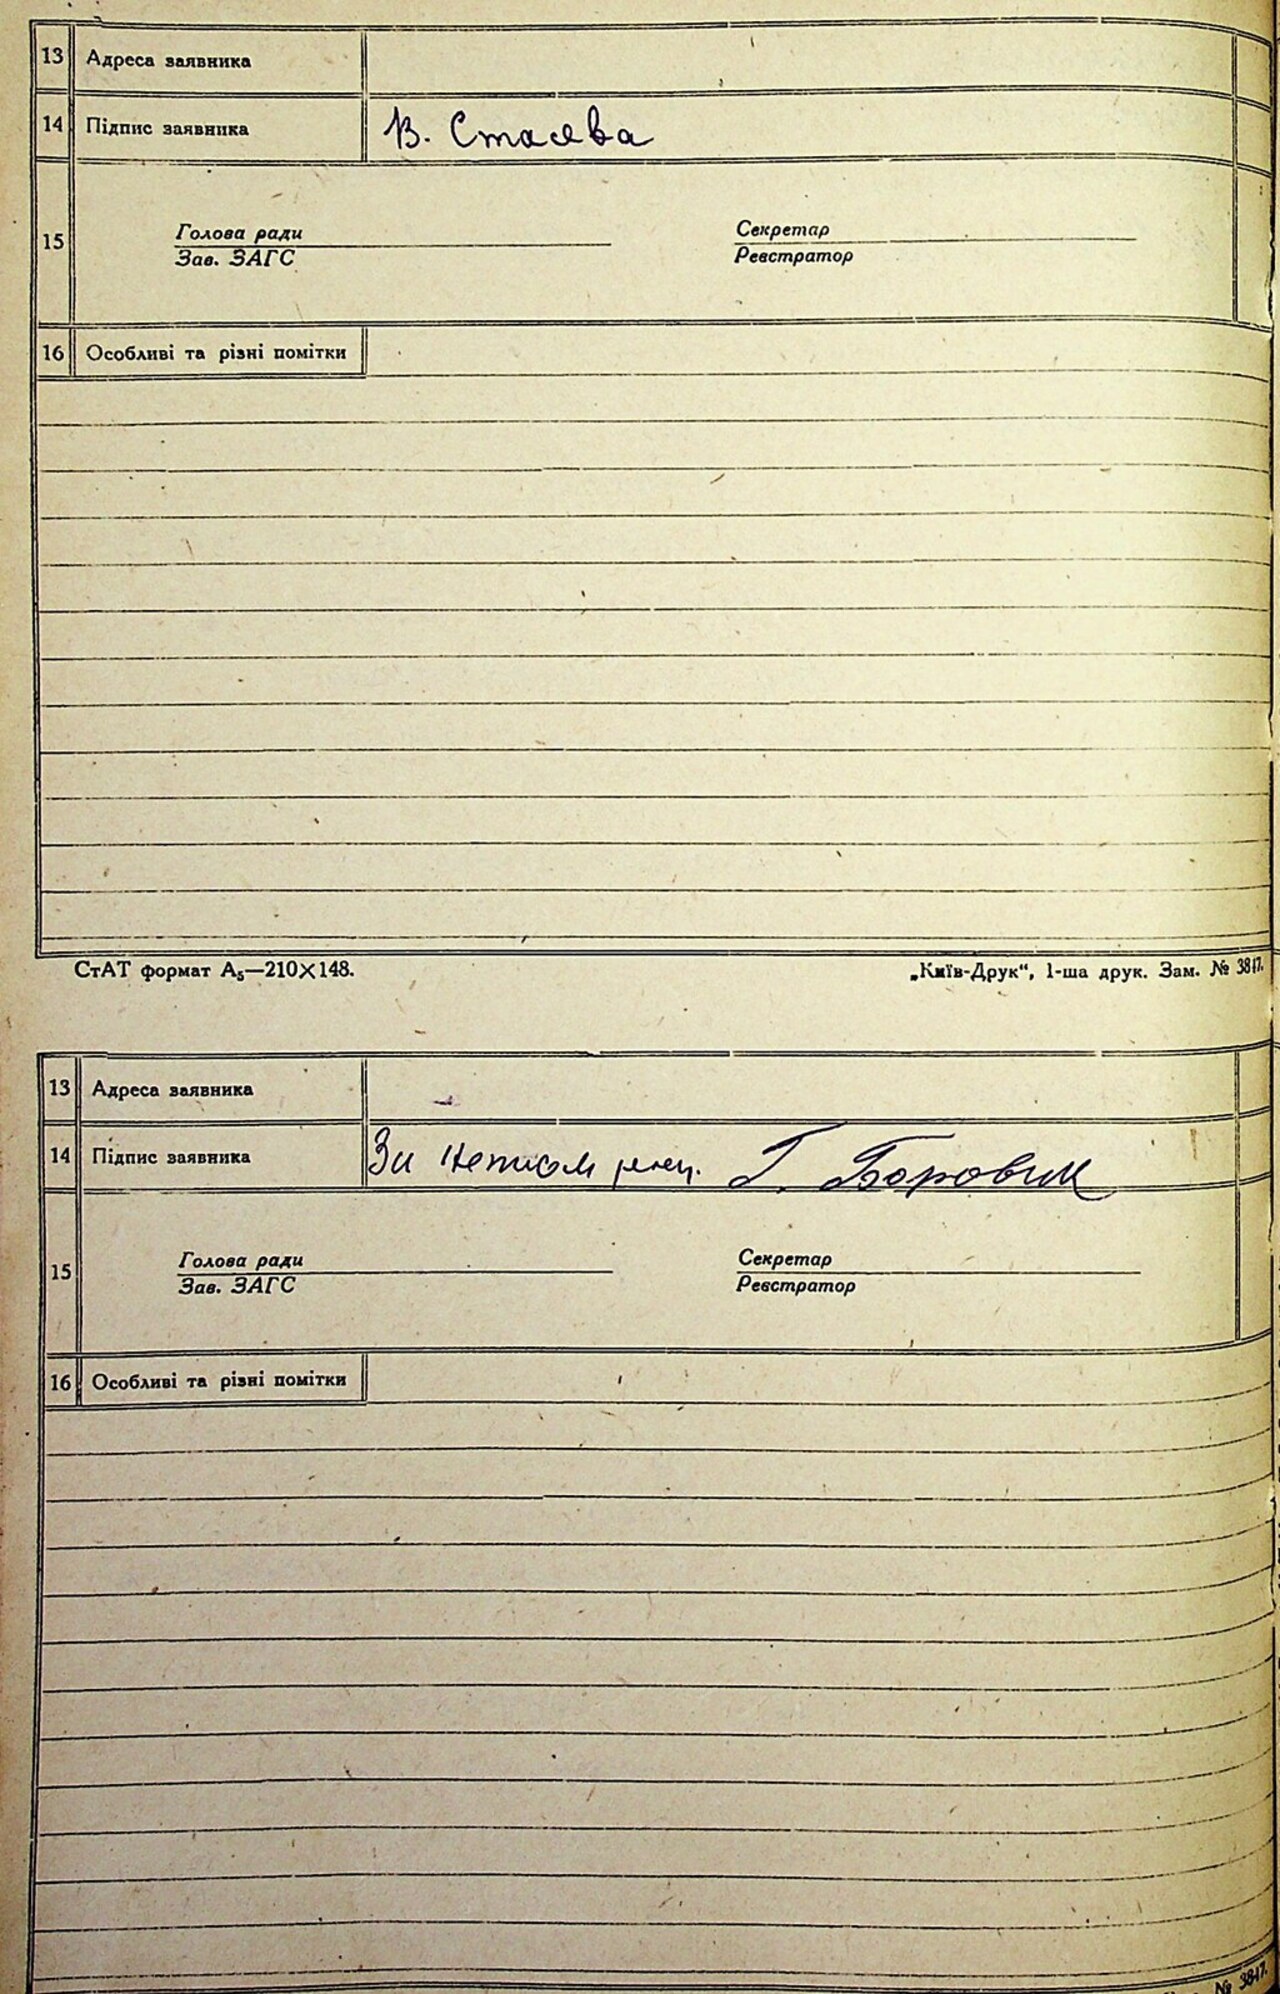 13 Адреса заявника
14 Підпис заявника В. Стаєва
15 Голова ради Секретар
Зав. ЗАГС Реєстратор
16 Особливі та різні помітки
СтАТ формат А₅—210×148. „Київ-Друк“, 1-ша друк. Зам. № 3817.
13 Адреса заявника
14 Підпис заявника За Г. Боровик
15 Голова ради Секретар
Зав. ЗАГС Реєстратор
16 Особливі та різні помітки
№ 3817.